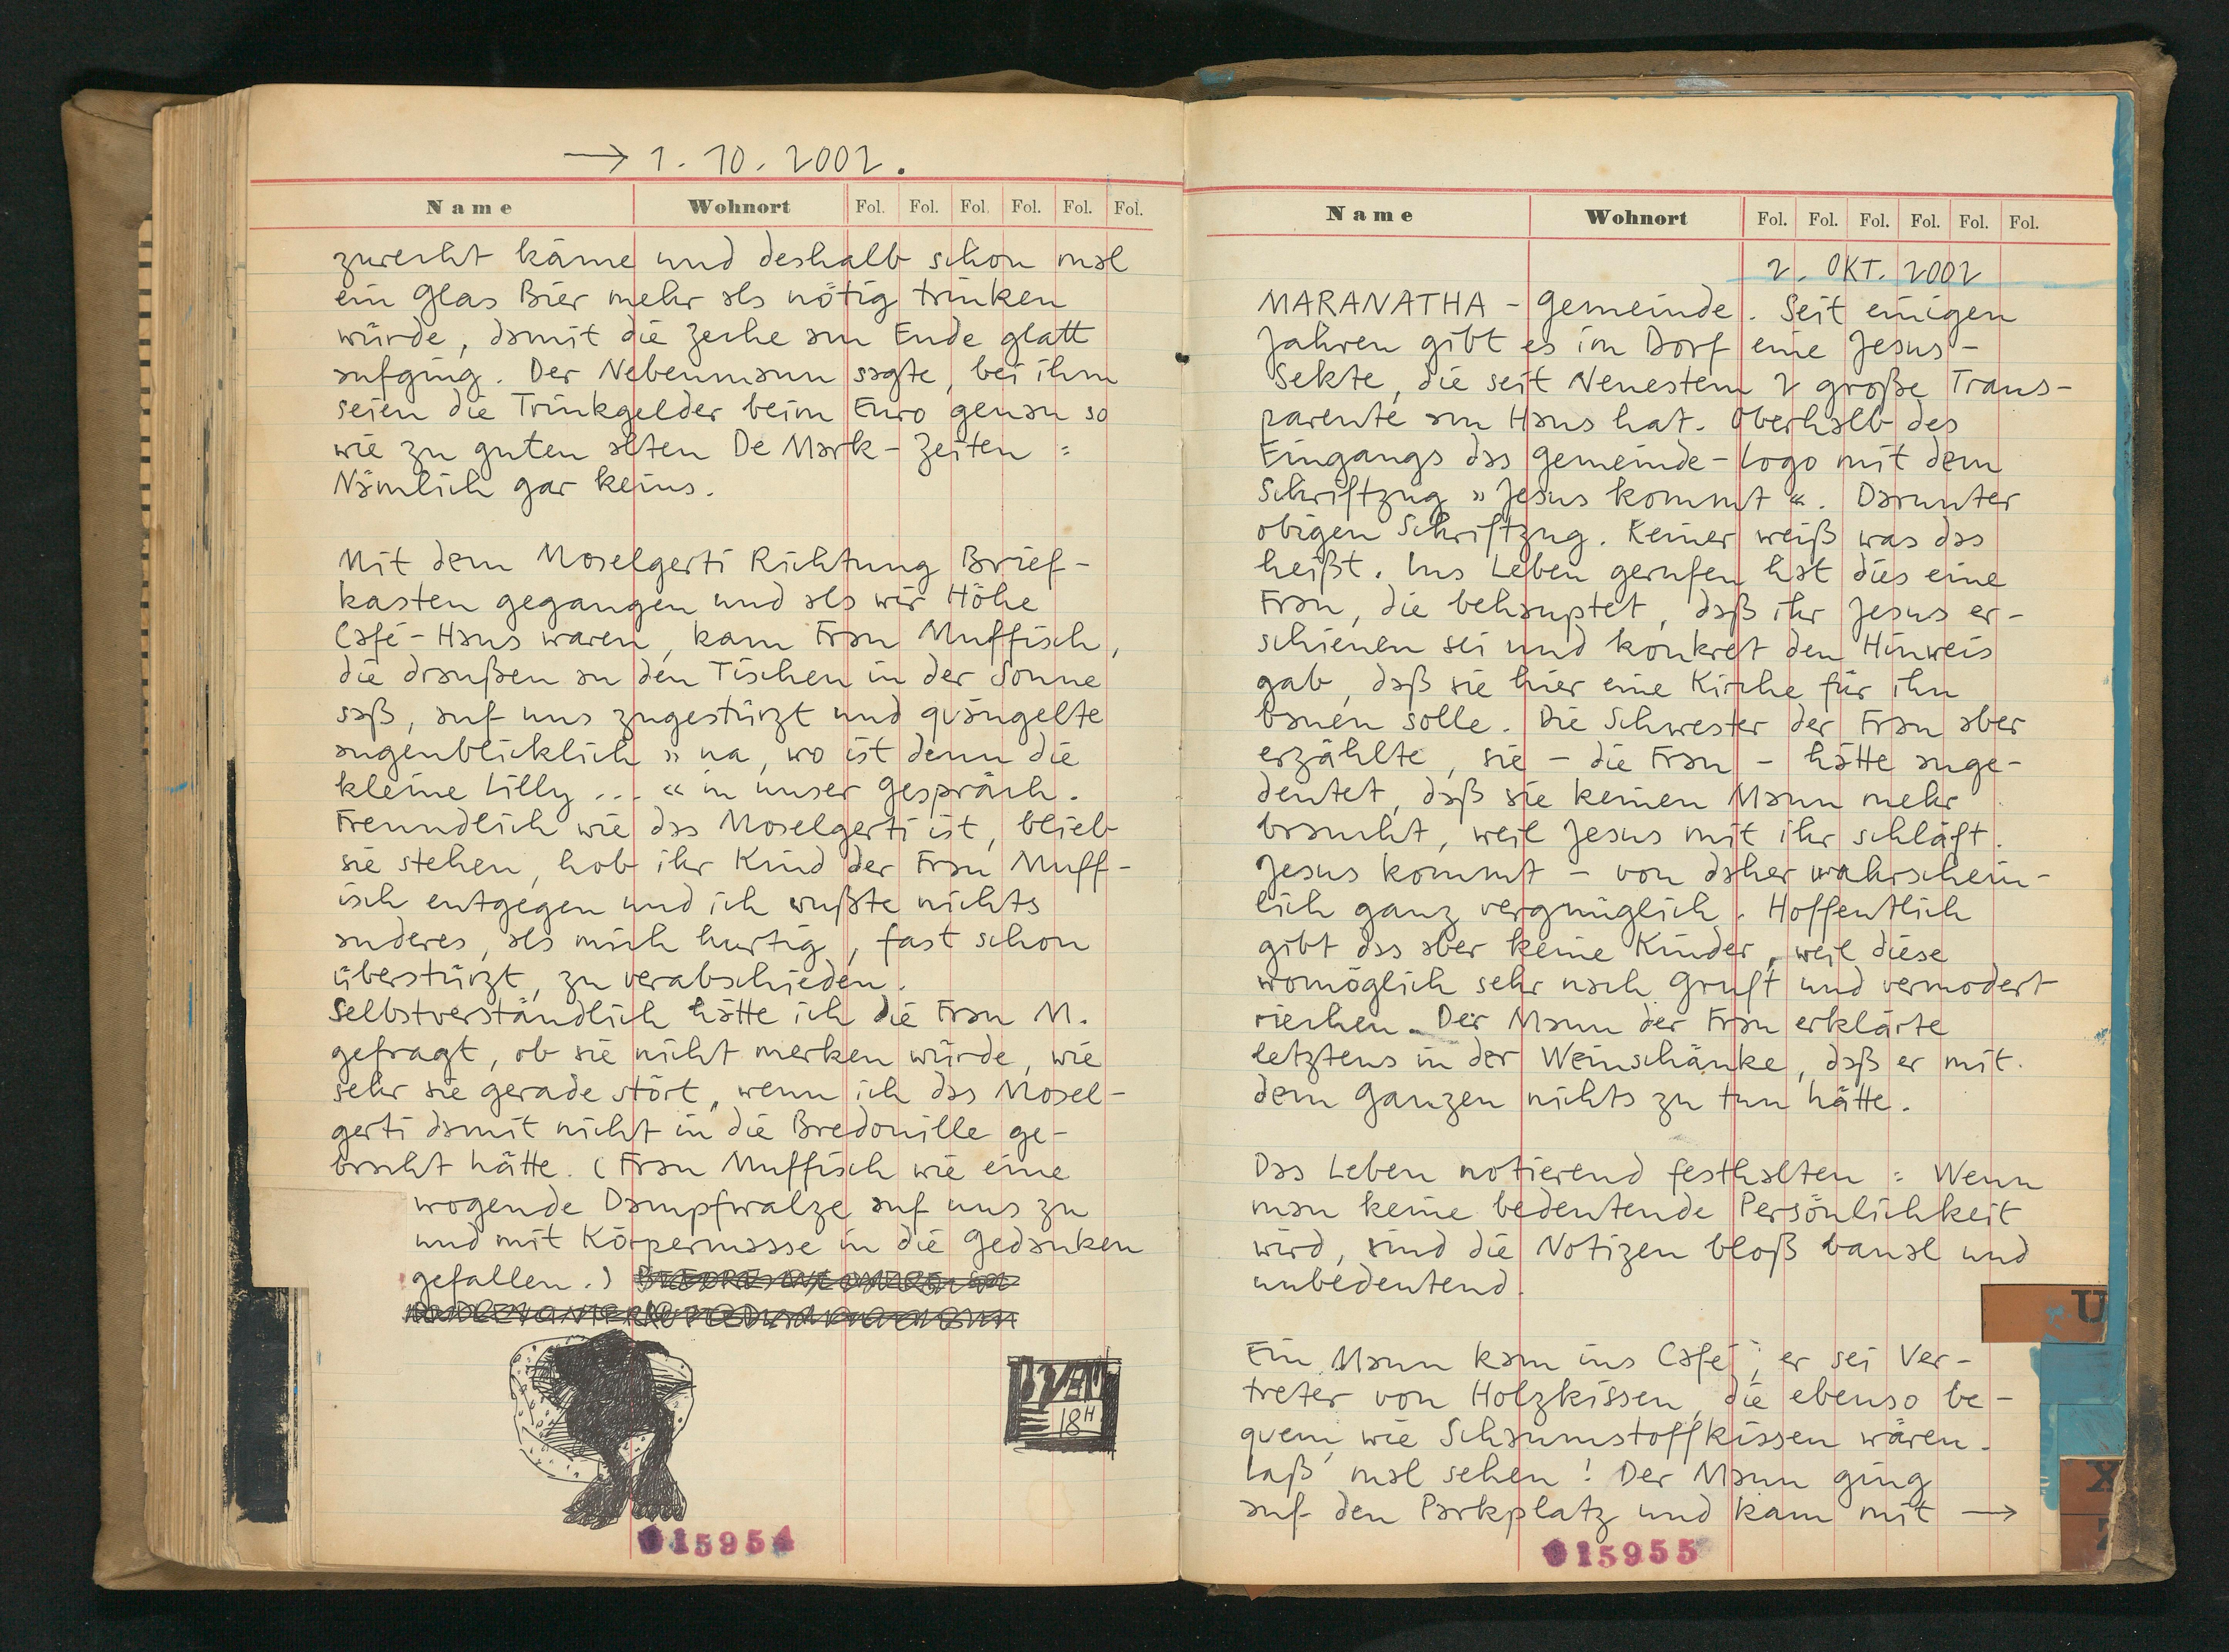 → 1. 10. 2002.
Name Wohnort Fol. Fol. Fol. Fol. Fol. Fol.
zurecht käme und deshalb schon mal
ein Glas Bier mehr als nötig trinken
würde, damit die Zeche am Ende glatt
aufging. Der Nebenmann sagte, bei ihm
seien die Trinkgelder beim Euro genau so
wie zu guten alten De Mark-Zeiten :
Nämlich gar keins.
Mit dem Moselgerti Richtung Brief-
kasten gegangen und als wir Höhe
Café-Haus waren, kam Frau Muffisch,
die draußen an den Tischen in der Sonne
saß, auf uns zugestürzt und quängelte
augenblicklich » na, wo ist denn die
kleine Lilly ... « in unser Gespräch.
Freundlich wie das Moselgerti ist, blieb
sie stehen, hob ihr Kind der Frau Muff-
isch entgegen und ich wußte nichts
anderes, als mich hurtig, fast schon
überstürzt, zu verabschieden.
Selbstverständlich hätte ich die Frau M.
gefragt, ob sie nicht merken würde, wie
sehr sie gerade stört, wenn ich das Mosel-
gerti damit nicht in die Bredouille ge-
bracht hätte. (Frau Muffisch wie eine
wogende Dampfwalze auf uns zu
und mit Körpermasse in die Gedanken
gefallen.)
18H
015954
Name Wohnort Fol. Fol. Fol. Fol. Fol. Fol.
2. OKT. 2002
MARANATHA - Gemeinde. Seit einigen
Jahren gibt es im Dorf eine Jesus-
Sekte, die seit Neuestem 2 große Trans-
parente am Haus hat. Oberhalb des
Eingangs das Gemeinde-Logo mit dem
Schriftzug » Jesus kommt «. Darunter
obigen Schriftzug. Keiner weiß was das
heißt. Ins Leben gerufen hat dies eine
Frau, die behauptet, daß ihr Jesus er-
schienen sei und konkret den Hinweis
gab, daß sie hier eine Kirche für ihn
bauen solle. Die Schwester der Frau aber
erzählte, sie - die Frau - hätte ange-
deutet, daß sie keinen Mann mehr
braucht, weil Jesus mit ihr schläft.
Jesus kommt - von daher wahrschein-
lich ganz vergnüglich. Hoffentlich
gibt das aber keine Kinder, weil diese
womöglich sehr nach Gruft und vermodert
riechen. Der Mann der Frau erklärte
letztens in der Weinschänke, daß er mit
dem Ganzen nichts zu tun hätte.
Das Leben notierend festhalten : Wenn
man keine bedeutende Persönlichkeit
wird, sind die Notizen bloß banal und
unbedeutend.
Ein Mann kam ins Café, er sei Ver-
treter von Holzkissen, die ebenso be-
quem wie Schaumstoffkissen wären.
Laß mal sehen! Der Mann ging
auf den Parkplatz und kam mit →
015955
U
X
Z